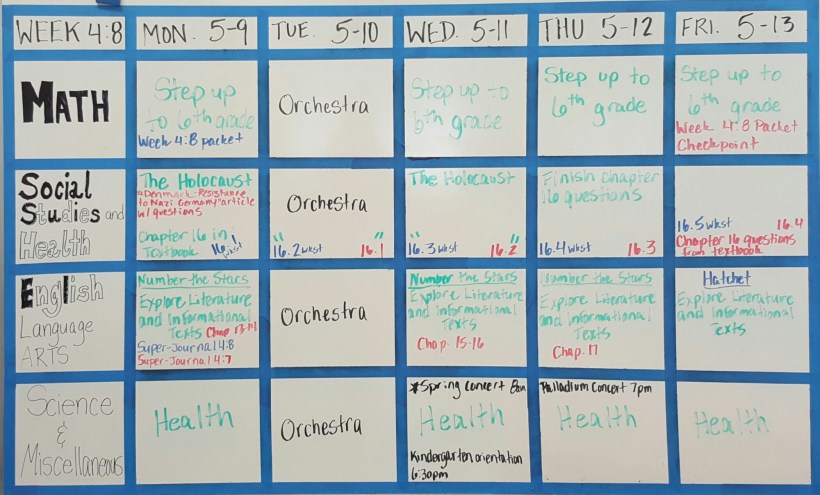 WEEK 4:8
MON. 5-9
TUE. 5-10
WED. 5-11
THU 5-12
FRI. 5-13
MATH
Step up
to 6th grade
Week 4:8 packet
Orchestra
Step up to
6th grade
Step up to
6th grade
Step up to
6th grade
Week 4:8 Packet
Checkpoint
Social
Studies and
Health
The Holocaust
"Denmark: Resistance
to Nazi Germany" article
w/ questions
Chapter 16 in
Textbook 16.1 wkst
Orchestra
" "
16.2 wkst 16.1
The Holocaust
" "
16.3 wkst 16.2
Finish chapter
16 questions
16.4 wkst 16.3
16.5 wkst 16.4
Chapter 16 questions
from textbook
English
Language
ARTS
Number the Stars
Explore Literature
and Informational
Texts Chap.
Super-Journal 4:8
Super-Journal 4:7
Orchestra
Number the Stars
Explore Literature
and Informational
Texts
Chap. 15-16
Number the Stars
Explore Literature
and Informational
Texts
Chap. 17
Hatchet
Explore Literature
and Informational
Texts
Science
&
Miscellaneous
Health
Orchestra
*Spring concert 8am
Health
Kindergarten orientation
6:30pm
Palladium Concert 7pm
Health
Health